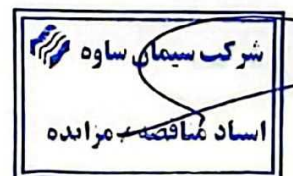 شرکت سیمان ساوه
اسناد مناقصه - مزایده